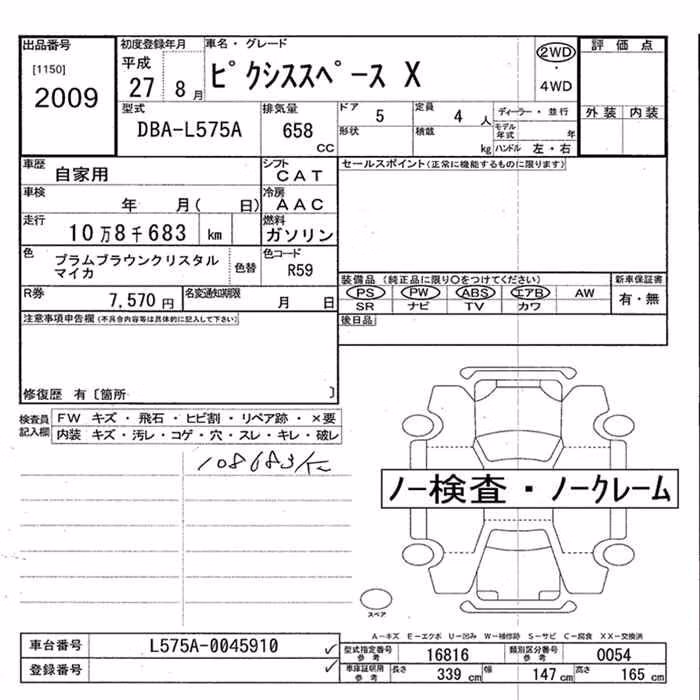 出品番号
[1150]
2009
初度登録年月
平成
27 8 月
車名・グレード
ピクシススペース X
2WD
・
4WD
評価点
外装 内装
型式
DBA-L575A
排気量
658 CC
ドア
5
形状
定員
4 人
積載
kg
ディーラー・並行
モデル年式 年
ハンドル 左・右
車歴
自家用
シフト
CAT
車検
年 月( 日)
冷房
AAC
走行
10万8千683 km
燃料
ガソリン
色
プラムブラウンクリスタル
マイカ
色替
色コード
R59
R券
7,570 円
名変通知期限
月 日
セールスポイント(正常に機能するものに限ります)
装備品 (純正品に限り○をつけてください)
PS PW ABS エアB AW
SR ナビ TV カワ
新車保証書
有・無
後日品
注意事項申告欄 (不具合内容等は具体的に記入して下さい)
修復歴 有〔箇所 〕
検査員
記入欄
FW キズ・飛石・ヒビ割・リペア跡・×要
内装 キズ・汚レ・コゲ・穴・スレ・キレ・破レ
108683Km
ノー検査・ノークレーム
スペア
A-キズ E-エクボ U-凹み W-補修跡 S-サビ C-腐食 XX-交換済
車台番号
L575A-0045910
登録番号
型式指定番号
参考
16816
類別区分番号
参考
0054
車庫証明用
参考
長さ 339 cm 幅 147 cm 高さ 165 cm